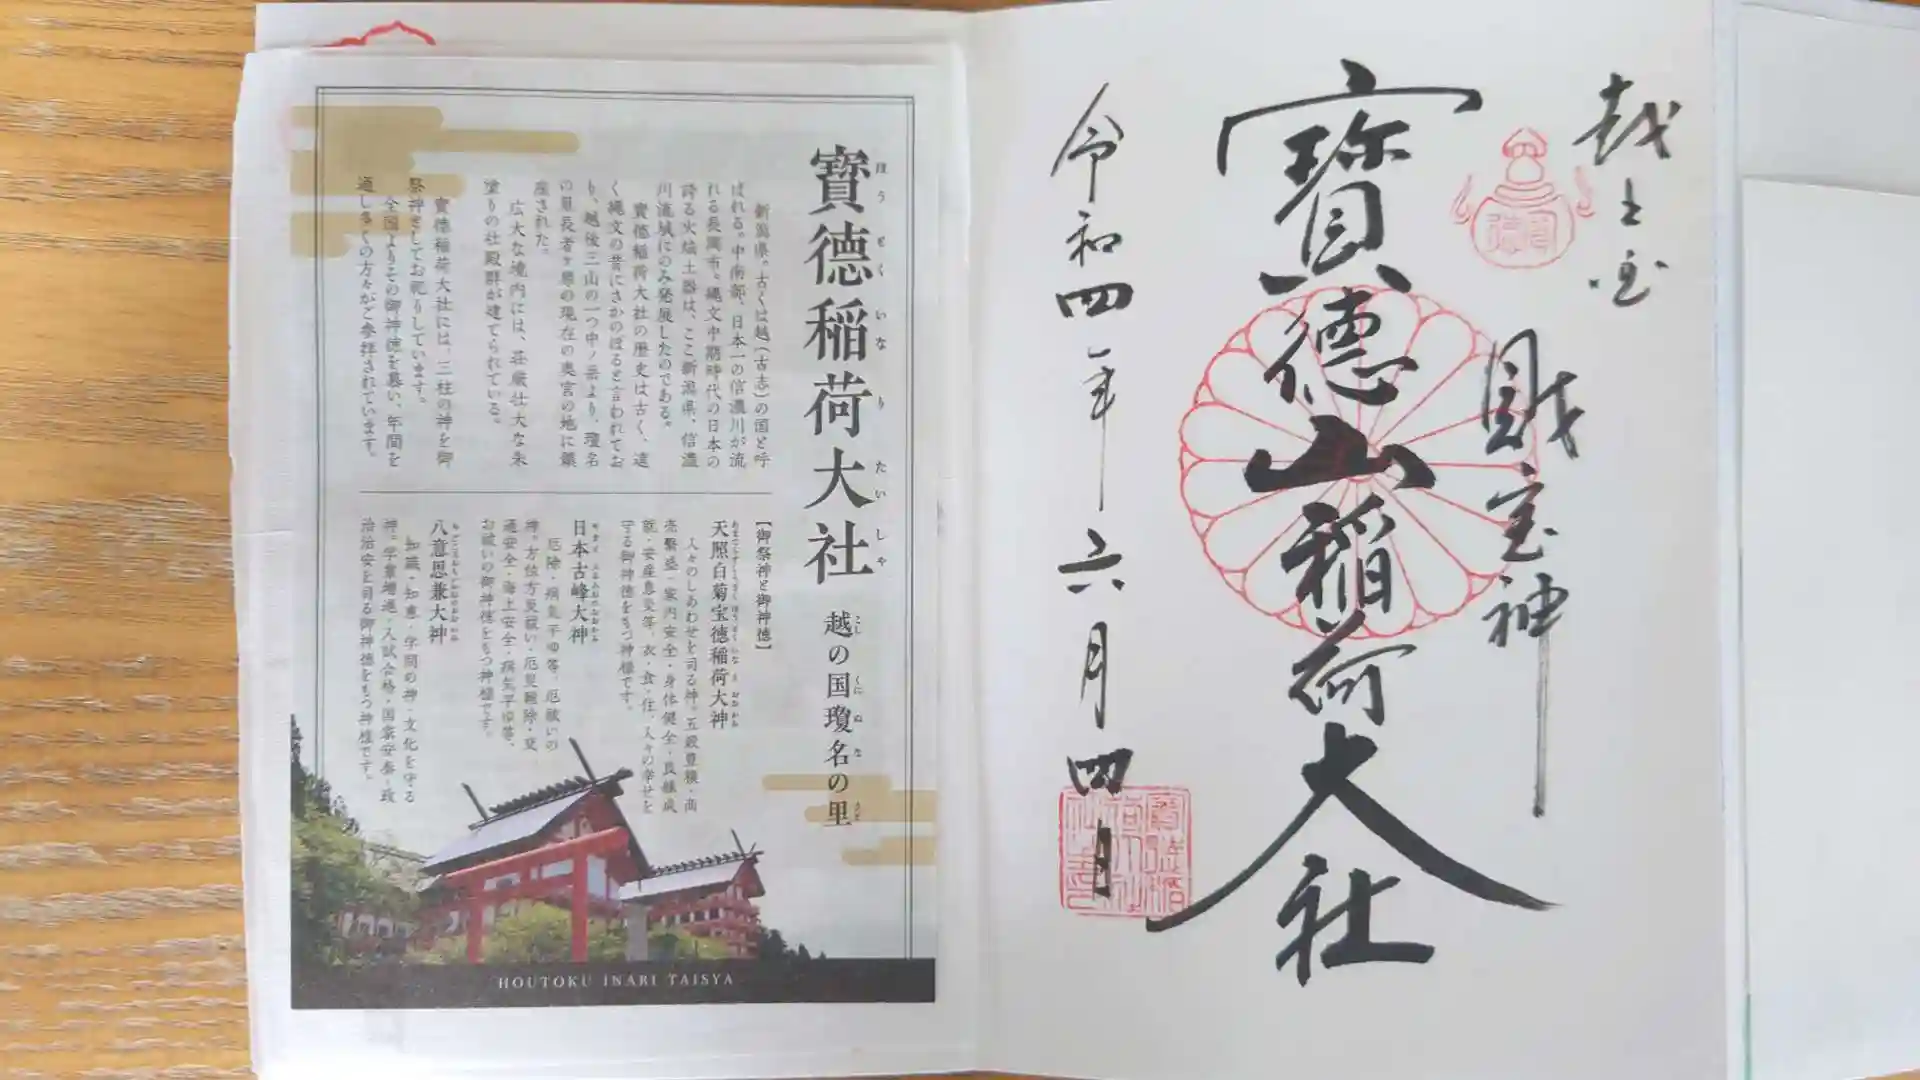 越之宝
財宝神
寶徳山稲荷大社
令和四年六月四日
寶徳稲荷大社
ほうとくいなりたいしゃ
越の国瓊名の里
こし くに ぬな さと
新潟県。古くは越(古志)の国と呼
ばれる。中南部、日本一の信濃川が流
れる長岡市。縄文中期時代の日本の
誇る火焔土器は、ここ新潟県、信濃
川流域にのみ発展したのである。
寶徳稲荷大社の歴史は古く、遠
く縄文の昔にさかのぼると言われてお
り、越後三山の一つ中ノ岳より、瓊名
の里長者ヶ原の現在の奥宮の地に鎮
座された。
広大な境内には、荘厳壮大な朱
塗りの社殿群が建てられている。
寶徳稲荷大社には、三柱の神を御
祭神としてお祀りしています。
全国よりその御神徳を慕い、年間を
通し多くの方々がご参拝されています。
【御祭神と御神徳】
天照白菊宝徳稲荷大神
人々のしあわせを司る神。五穀豊穣・商
売繁盛・家内安全・身体健全・良縁成
就・安産息災等、衣・食・住、人々の幸せを
守る御神徳をもつ神様です。
日本古峰大神
厄除・病気平癒等、厄祓いの
神。方位方災祓い・厄災難除・交
通安全・海上安全・病気平癒等、
お祓いの御神徳をもつ神様です。
八意思兼大神
知識・知恵・学問の神・文化を守る
神。学業増進・入試合格・国家安泰・政
治治安を司る御神徳をもつ神様です。
HOUTOKU INARI TAISYA